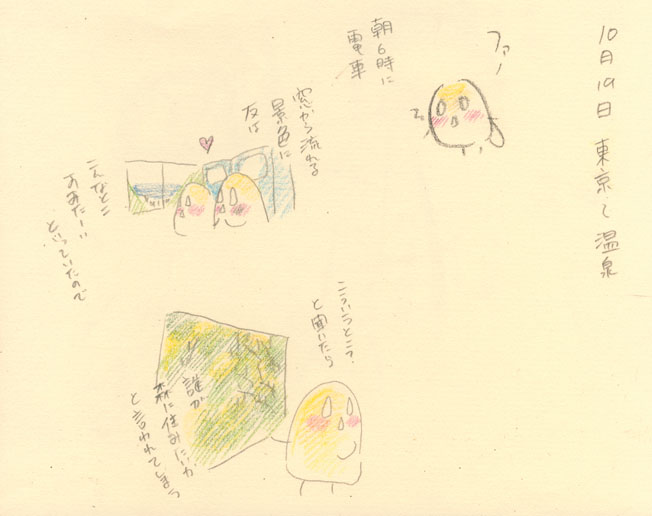 10月19日 東京〜温泉
ファ〜
朝6時に
電車
窓から流れる
景色に
友は
こんなとこ
といっていたので
こういうとこ?
と聞いたら
誰が
森に住みたいか
と言われてしまう